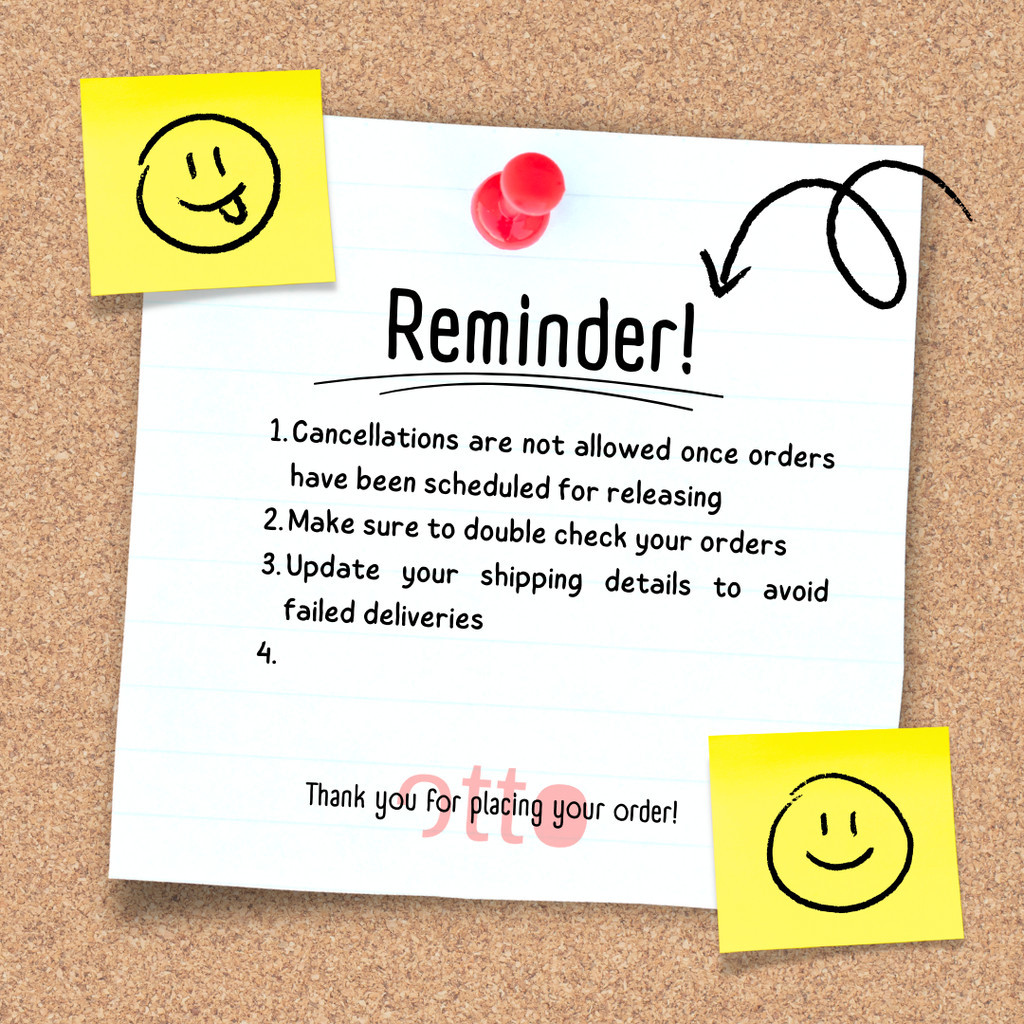 Reminder!
1. Cancellations are not allowed once orders
have been scheduled for releasing
2. Make sure to double check your orders
3. Update your shipping details to avoid
failed deliveries
4.
otto
Thank you for placing your order!